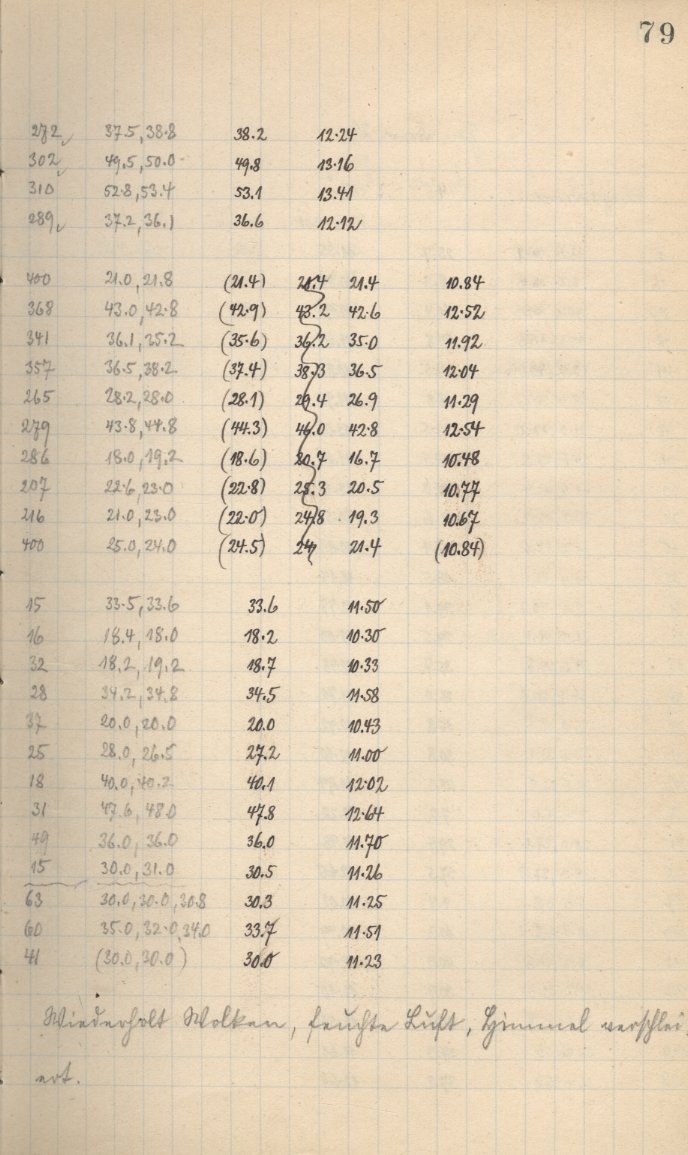 79
272 37.5, 38.8 38.2 12.24
302 49.5, 50.0 49.8 13.16
310 52.8, 53.4 53.1 13.41
289 37.2, 36.1 36.6 12.12
400 21.0, 21.8 (21.4) 21.4 21.4 10.84
368 43.0, 42.8 (42.9) 43.2 42.6 12.52
341 36.1, 35.2 (35.6) 36.2 35.0 11.92
357 36.5, 38.2 (37.4) 38.3 36.5 12.04
265 28.2, 28.0 (28.1) 29.4 26.9 11.29
279 43.8, 44.8 (44.3) 46.0 42.8 12.54
286 18.0, 19.2 (18.6) 20.7 16.7 10.48
207 22.6, 23.0 (22.8) 25.3 20.5 10.77
216 21.0, 23.0 (22.0) 24.8 19.3 10.67
400 25.0, 24.0 (24.5) 24 21.4 (10.84)
15 33.5, 33.6 33.6 11.50
16 18.4, 18.0 18.2 10.30
32 18.2, 19.2 18.7 10.33
28 34.2, 34.8 34.5 11.58
37 20.0, 20.0 20.0 10.43
25 28.0, 26.5 27.2 11.00
18 40.0, 40.2 40.1 12.02
31 47.6, 48.0 47.8 12.64
49 36.0, 36.0 36.0 11.70
15 30.0, 31.0 30.5 11.26
63 30.0, 30.0, 30.8 30.3 11.25
60 35.0, 32.0, 34.0 33.7 11.51
41 (30.0, 30.0) 30.0 11.23
Wiederholt Wolken, feuchte Luft, Himmel verschlei-
ert.